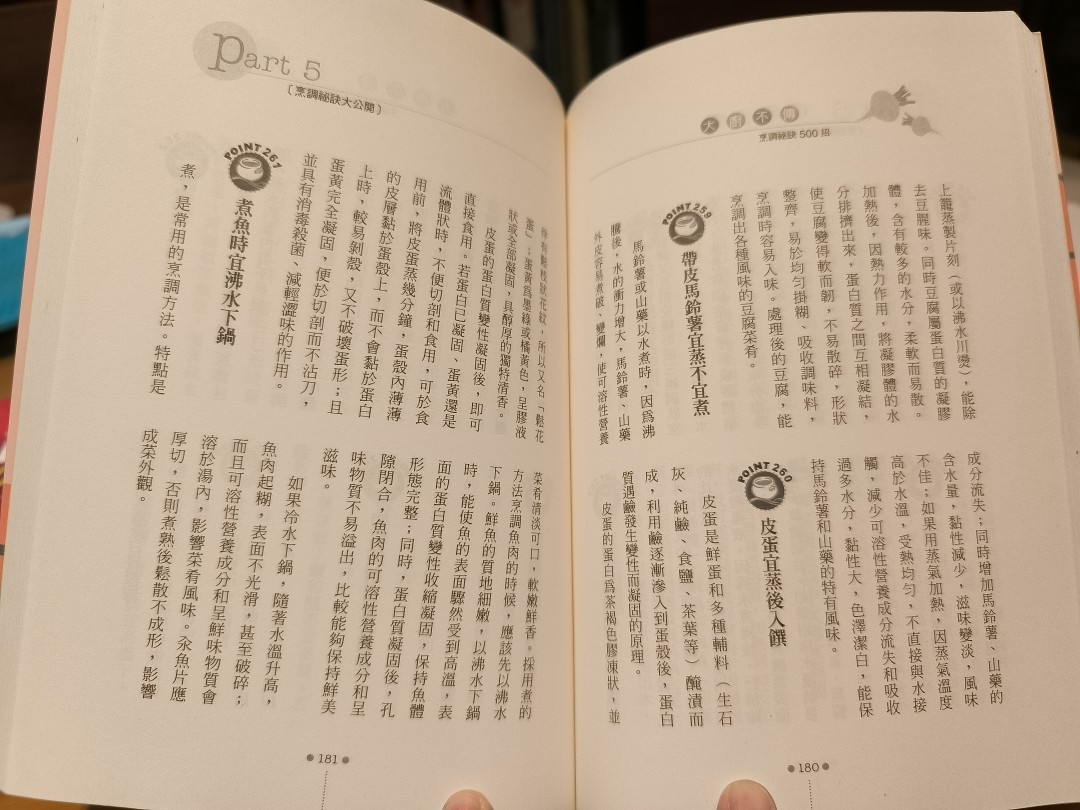 大廚不傳
烹調秘訣500招
上籠蒸製片刻（或以沸水川燙），能除
去豆腥味。同時豆腐屬蛋白質的凝膠
體，含有較多的水分，柔軟而易散。
加熱後，因熱力作用，將凝膠體的水
分排擠出來，蛋白質之間互相凝結，
使豆腐變得軟而韌，不易散碎，形狀
整齊，易於均勻掛糊、吸收調味料，
烹調時容易入味。處理後的豆腐，能
烹調出各種風味的豆腐菜肴。
POINT 259
帶皮馬鈴薯宜蒸不宜煮
馬鈴薯或山藥以水煮時，因為沸
騰後，水的衝力增大，馬鈴薯、山藥
外皮容易煮破、變爛，使可溶性營養
成分流失；同時增加馬鈴薯、山藥的
含水量，黏性減少，滋味變淡，風味
不佳；如果用蒸氣加熱，因蒸氣溫度
高於水溫，受熱均勻，不直接與水接
觸，減少可溶性營養成分流失和吸收
過多水分，黏性大，色澤潔白，能保
持馬鈴薯和山藥的特有風味。
POINT 260
皮蛋宜蒸後入饌
皮蛋是鮮蛋和多種輔料（生石
灰、純鹼、食鹽、茶葉等）醃漬而
成，利用鹼逐漸滲入到蛋殼後，蛋白
質遇鹼發生變性而凝固的原理。
皮蛋的蛋白為茶褐色膠凍狀，並
180
Part 5
〔烹調祕訣大公開〕
花紋，所以又名「鬆花
蛋」；蛋黃為墨綠或橘黃色，呈膠液
狀或全部凝固，具醇厚的獨特清香。
皮蛋的蛋白質變性凝固後，即可
直接食用。若蛋白已凝固、蛋黃還是
流體狀時，不便切剖和食用，可於食
用前，將皮蛋蒸幾分鐘，蛋殼內薄薄
的皮層黏於蛋殼上，而不會黏於蛋白
上時，較易剝殼，又不破壞蛋形；且
蛋黃完全凝固，便於切剖而不沾刀，
並具有消毒殺菌、減輕澀味的作用。
POINT 261
煮魚時宜沸水下鍋
煮，是常用的烹調方法。特點是
菜肴清淡可口，軟嫩鮮香。採用煮的
方法烹調魚肉的時候，應該先以沸水
下鍋。鮮魚的質地細嫩，以沸水下鍋
時，能使魚的表面驟然受到高溫，表
面的蛋白質變性收縮凝固，保持魚體
形態完整；同時，蛋白質凝固後，孔
隙閉合，魚肉的可溶性營養成分和呈
味物質不易溢出，比較能夠保持鮮美
滋味。
如果冷水下鍋，隨著水溫升高，
魚肉起糊，表面不光滑，甚至破碎；
而且可溶性營養成分和呈鮮味物質會
溶於湯內，影響菜肴風味。汆魚片應
厚切，否則煮熟後鬆散不成形，影響
成菜外觀。
181